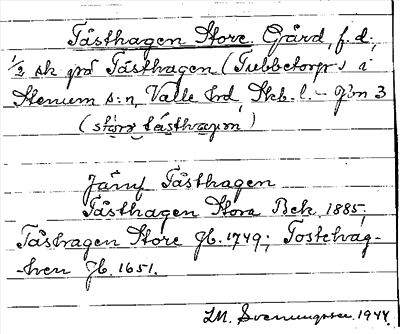 Tåsthagen Store Gård, f. d.,
1/2 sk på Tåsthagen (Tubbetorp) i
Stenum s:n, Valle hd, Skb. l. - Gbn 3
(stóra tásthagan)
Jämf Tåsthagen
Tåsthagen Stora Bek. 1885;
Tåshagen Store Jb. 1749; Tostehag-
-hen Jb. 1651.
I.M. Svenungsson. 1944.